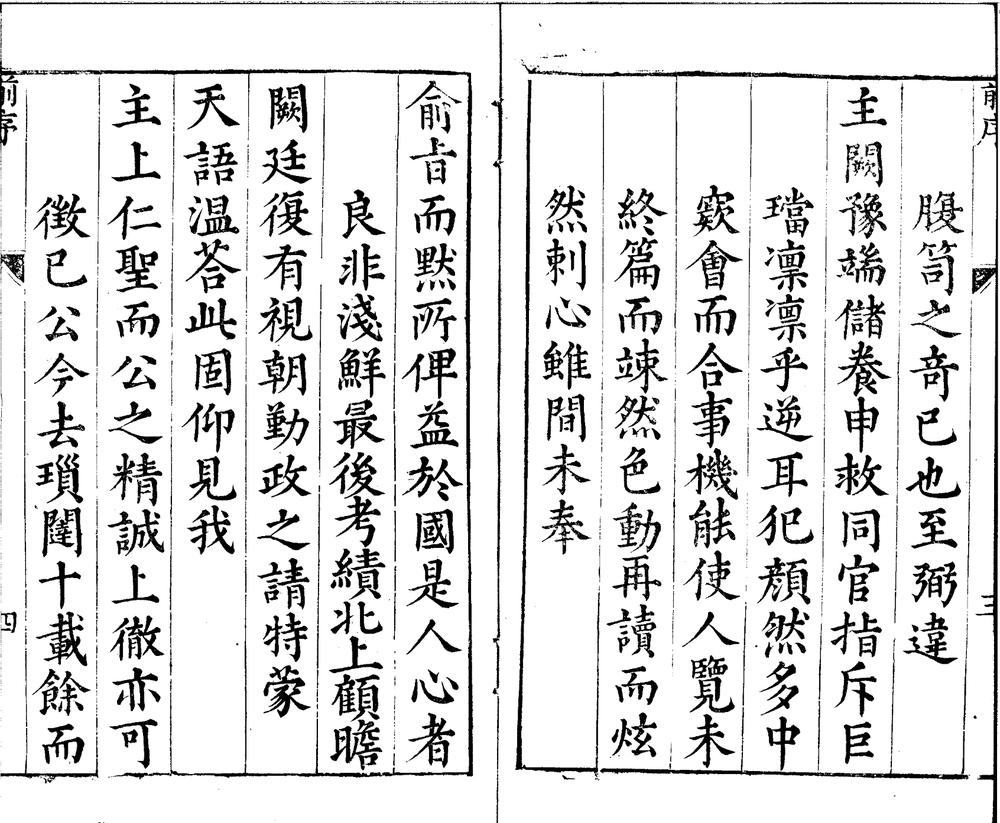 前序
三
腹笥之奇已也至弼違
主闕豫端儲養申救同官指斥巨
璫凛凛乎逆耳犯顔然多中
窾會而合事機能使人覽未
終篇而竦然色動再讀而炫
然刺心雖間未奉
俞旨而默所俾益於國是人心者
良非淺鮮最後考績北上顧瞻
闕廷復有視朝勤政之請特蒙
天語温荅此固仰見我
主上仁聖而公之精誠上徹亦可
徵已公今去瑣闥十載餘而
前序
四